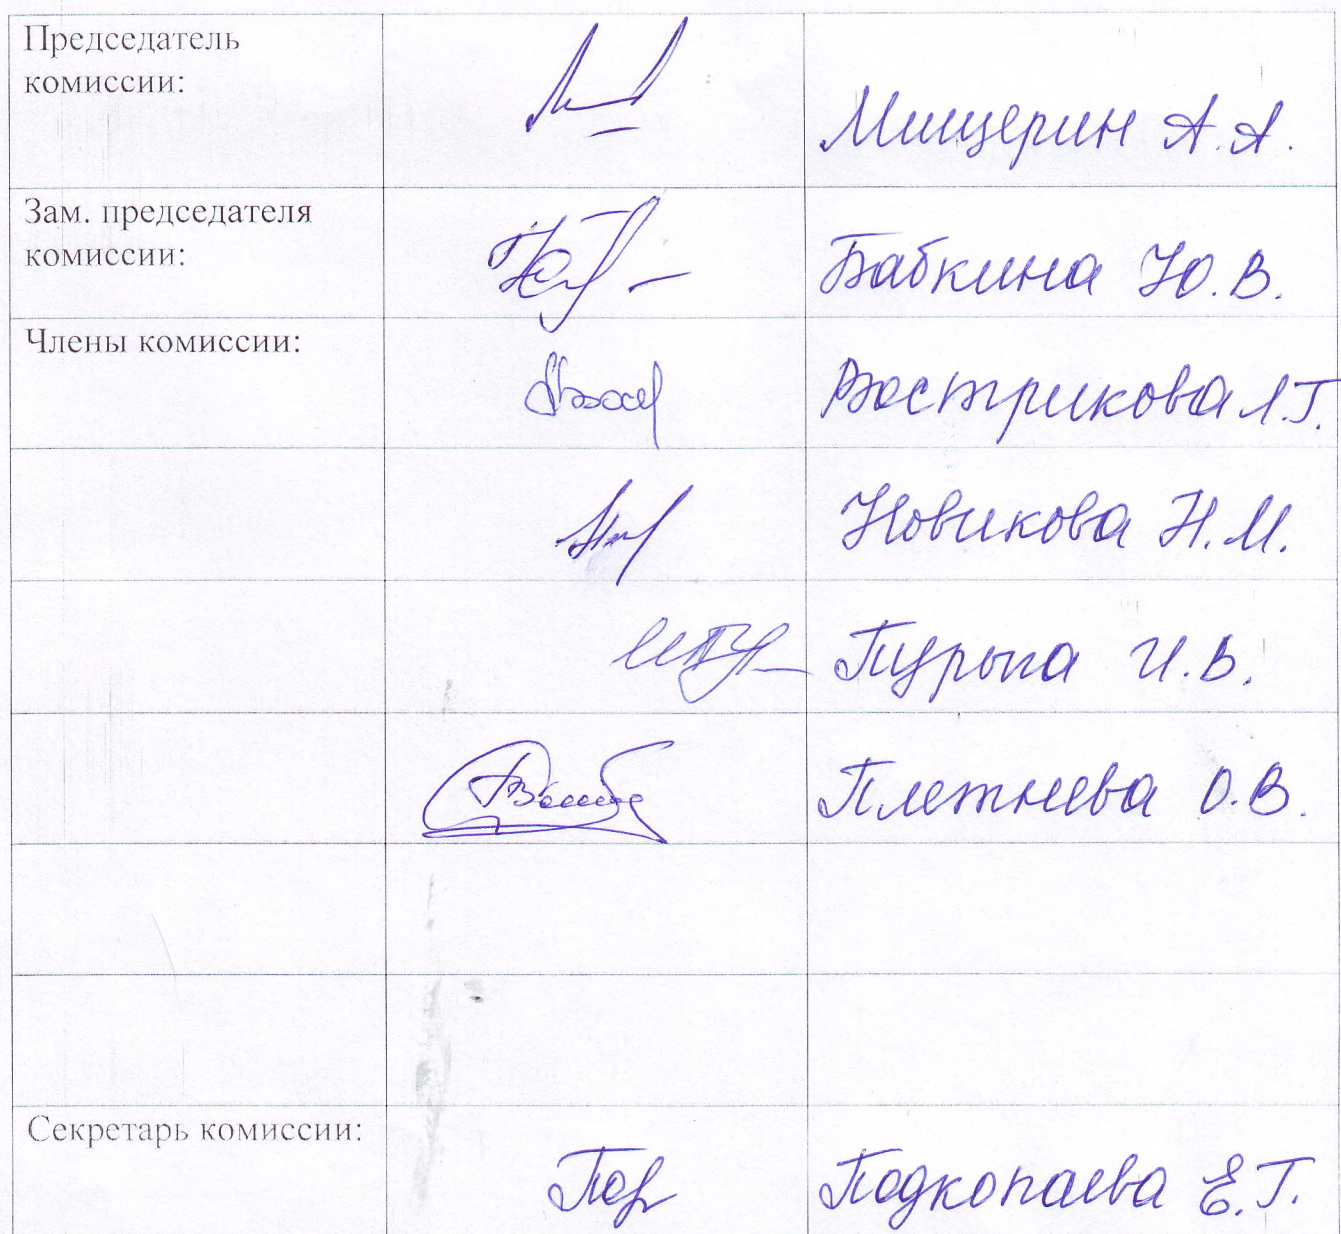 Председатель
комиссии:
Мищерин А.А.
Зам. председателя
комиссии:
Бабкина Ю.В.
Члены комиссии:
Вострикова Л.Г.
Новикова Н.М.
И.В.
Плетнева О.В.
Секретарь комиссии:
Подкопаева Е.Г.